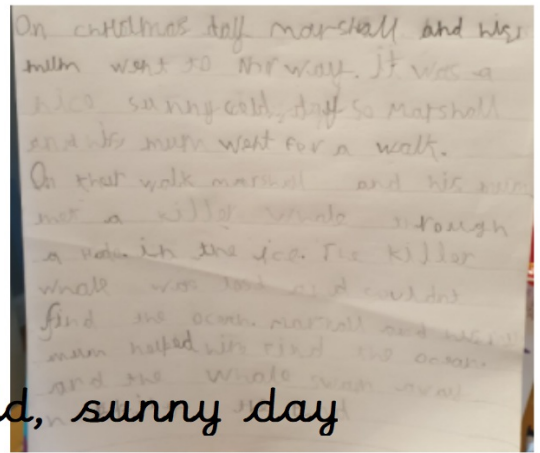 On christmas day marshall and his
mum went to Norway. It was a
nice sunny cold, day so Marshall
and his mum went for a walk.
On that walk marshall and his mum
met a killer whale through
a hole. in the ice. The killer
whale was lost and couldnt
find the ocean. marshall and his
mum helped him find the ocean.
and the whale swam away
d, sunny day